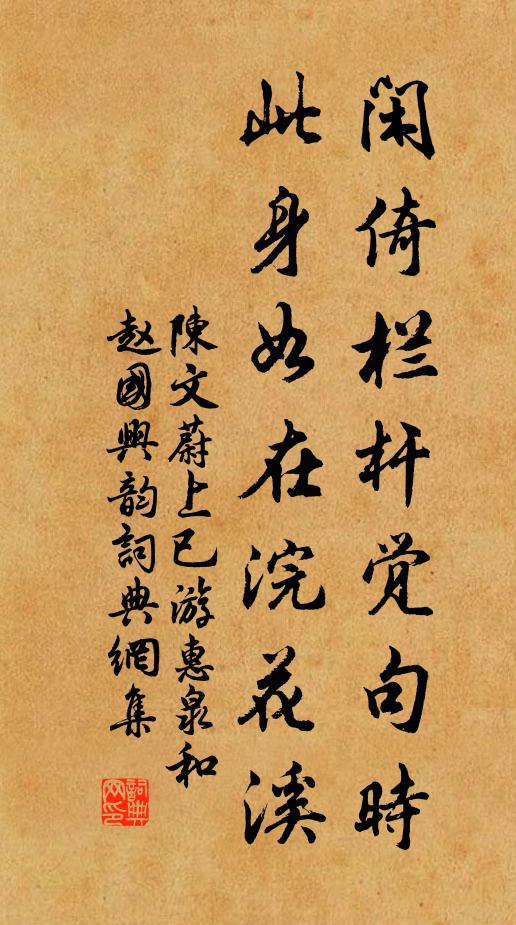 闲倚栏杆觉句時
此身如在浣花溪
陳文蔚上巳游惠泉和
赵國興韵詞典網集
詞典网印